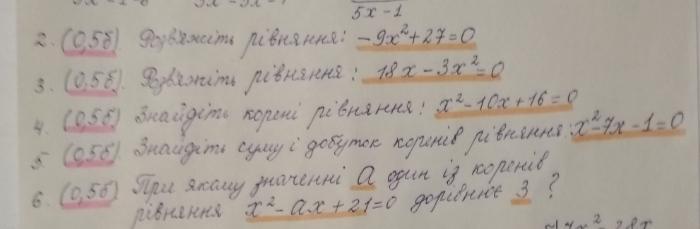 5x-1
2. (0,5б) Розв'яжіть рівняння: -9x²+27=0
3. (0,5б) Розв'яжіть рівняння: 18x-3x²=0
4. (0,5б) Знайдіть корені рівняння: x²-10x+16=0
5 (0,5б) Знайдіть суму і добуток коренів рівняння: x²-7x-1=0
6. (0,5б) При якому значенні a один із коренів
рівняння x²-ax+21=0 дорівнює 3 ?